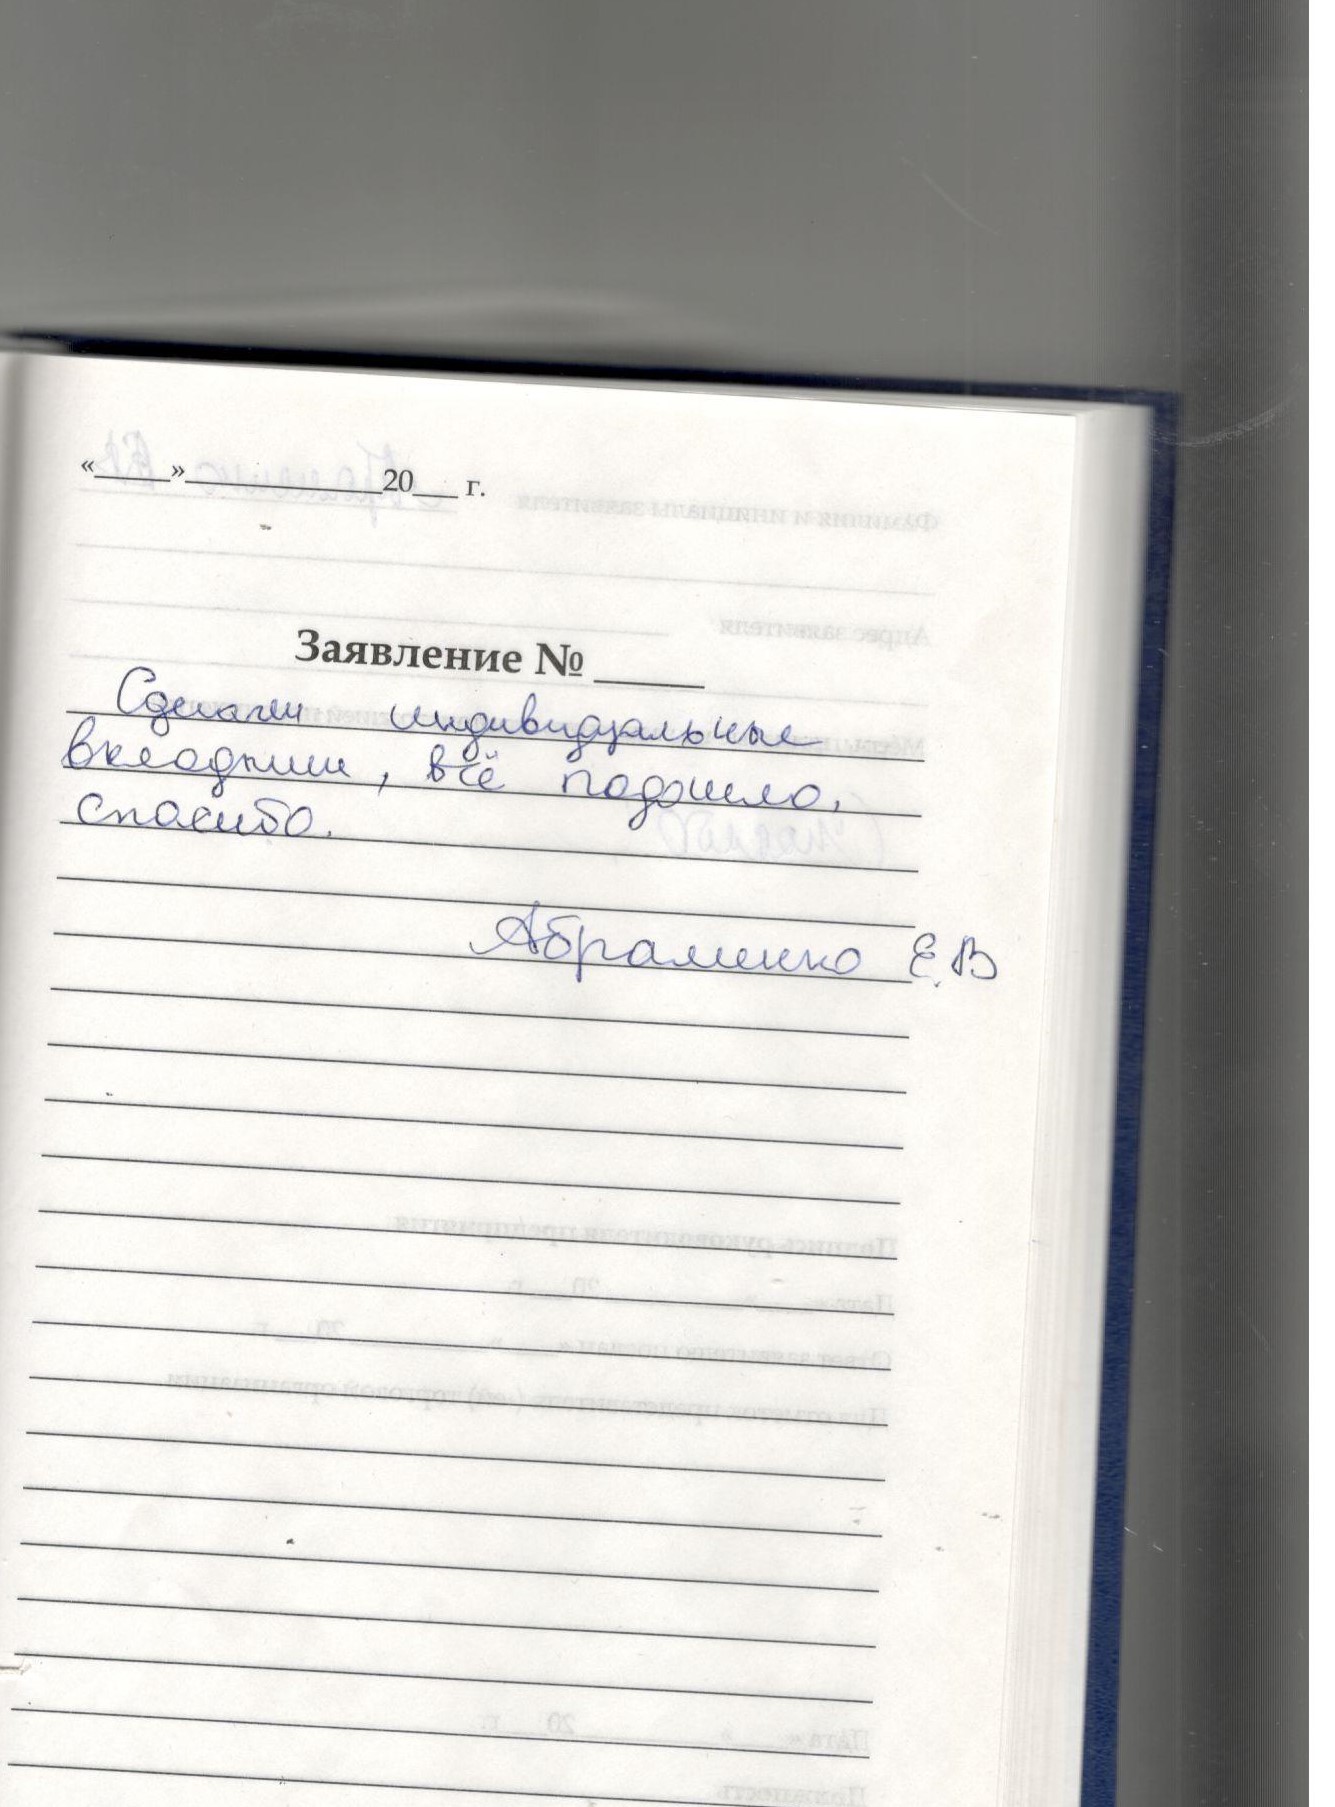 «_____»_____________20___ г.
Заявление № _____
Сделали индивидуальные
вкладыши, всё подошло,
спасибо.
Абраменко Е.В